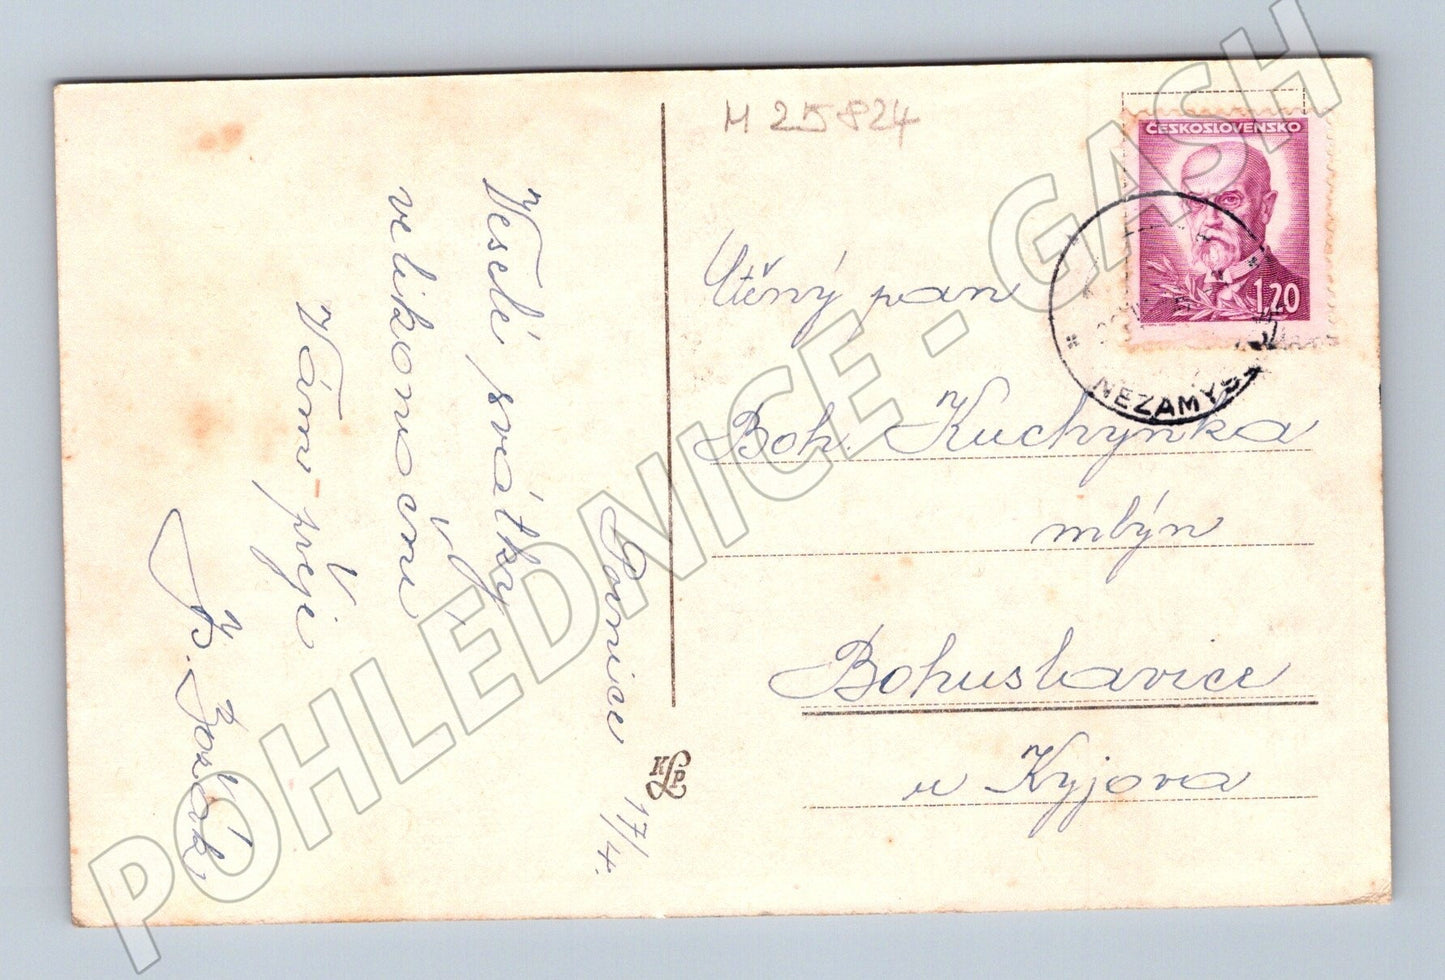 M 25824
ČESKOSLOVENSKO
1,20
NEZAMYS
Veselé svátky
velikonoční
Vám přeje
17/4.
Ctěný pan
Boh. Kuchyňka
mlýn
Bohuslavice
u Kyjova
KLP
POHLEDNICE - GASH